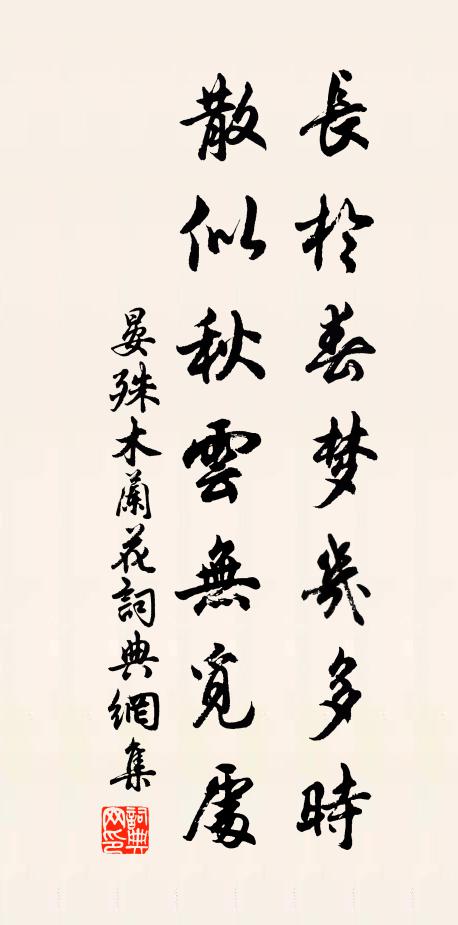 長於春梦幾多時
散似秋雲無覓處
晏殊木蘭花詞典網集
詞典网印